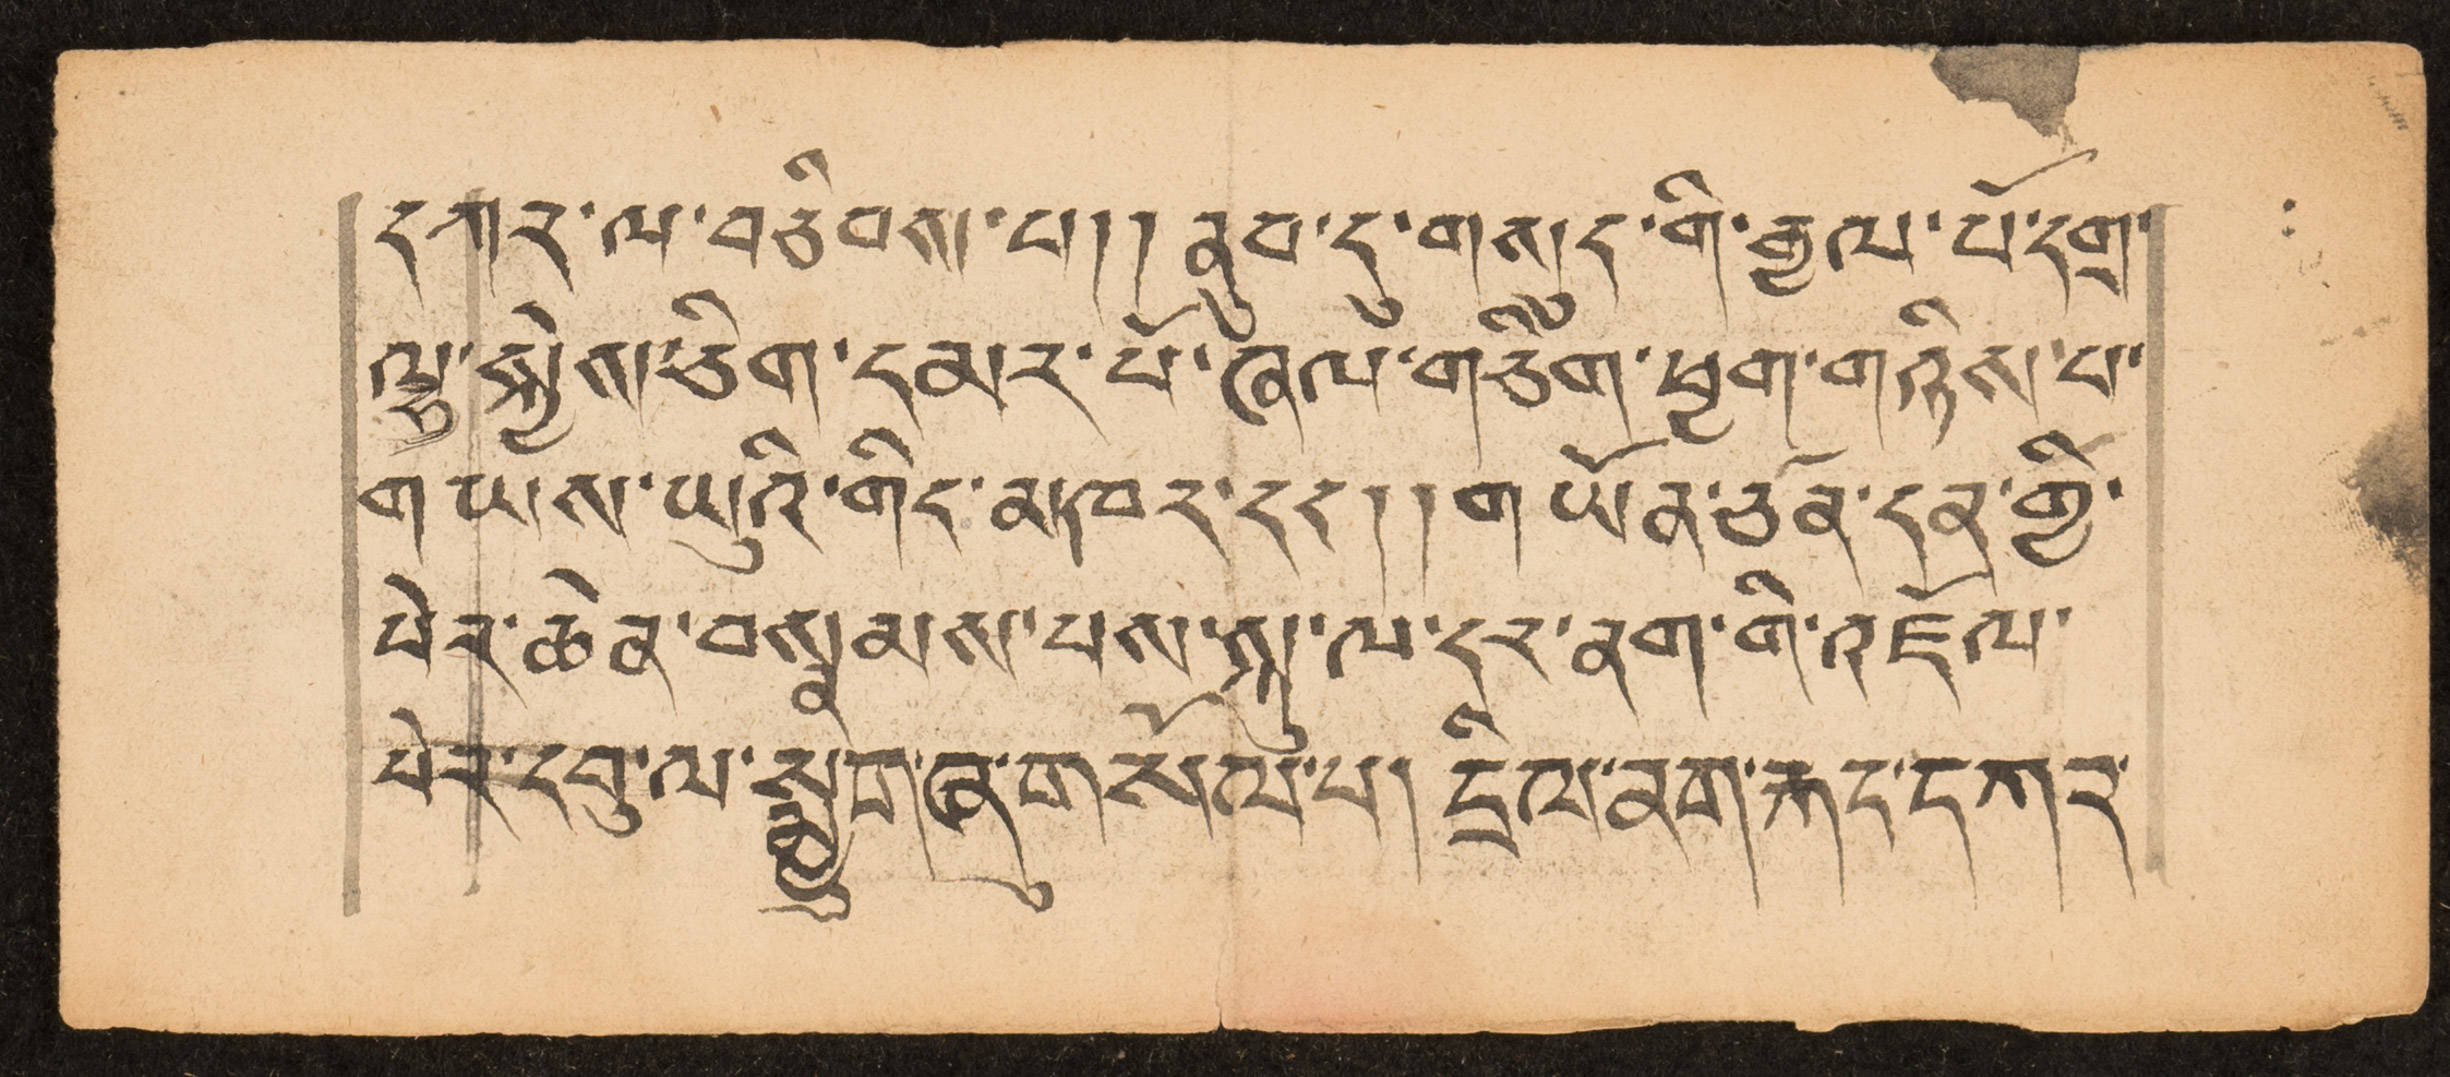 དཀར་ལ་བཅིབས་པ།། ནུབ་དུ་གནུད་གི་རྒྱལ་པོ་དགྲ་
ལྷ་སྐྱེས་ཅིག་དམར་པོ་ཞེལ་གཅིག་ཕྱག་གཉིས་པ་
ག ཡས་ཡུའི་གིང་མཁར་དང།། ག ཡོན་ཙན་དན་གྱི་
པེར་ཆེན་བསྣམས་པས་སྐུ་ལ་དར་ནག་གི་འཇོལ་
པེར་དབུ་ལ་སྨྱུག་ཞུ་གསོལ་པ། དྲིལ་ནག་རྐང་དཀར་